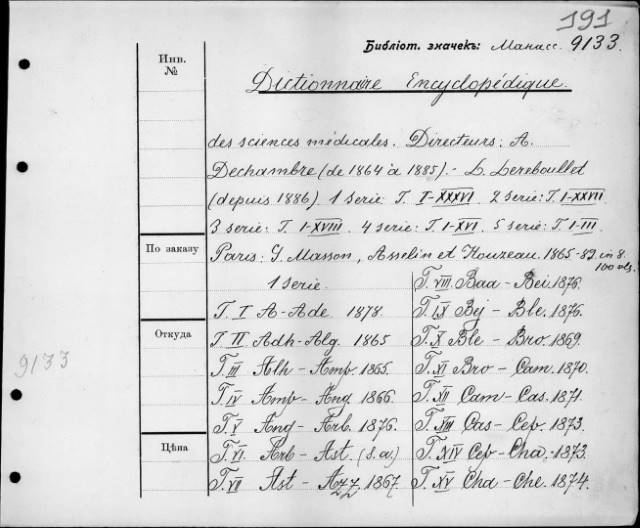 191
Библіот. значекъ: Манасс. 9133.
Инв.
№
Dictionnaire Encyclopédique.
des sciences médicales. Directeurs: A.
Dechambre (de 1864 à 1885). - L. Lereboullet
(depuis 1886). 1 serie: T. I-XXXVI. 2 serie: T. I-XXVII.
3 serie: T. I-XVIII. 4 serie: T. I-XVI. 5 serie: T. I-III.
По заказу
Paris: G. Masson, Asselin et Houzeau. 1865-89. in 8.
100 vls.
1 serie.
T. I A-Ade. 1878.
Откуда
T. II Adh-Alg. 1865
T. III Alh-Amp. 1865.
T. IV Amp-Ang. 1866.
T. V Ang-Arb. 1876.
Цѣна
T. VI Arb-Ast. (s.a.)
T. VII Ast-Azz. 1867.
T. VIII Baa-Bei. 1876.
T. IX Bej-Ble. 1876.
T. X Ble-Bro. 1869.
T. XI Bro-Cam. 1870.
T. XII Cam-Cas. 1871.
T. XIII Cas-Cep. 1873.
T. XIV Cep-Cha. 1873.
T. XV Cha-Che. 1874.
9133